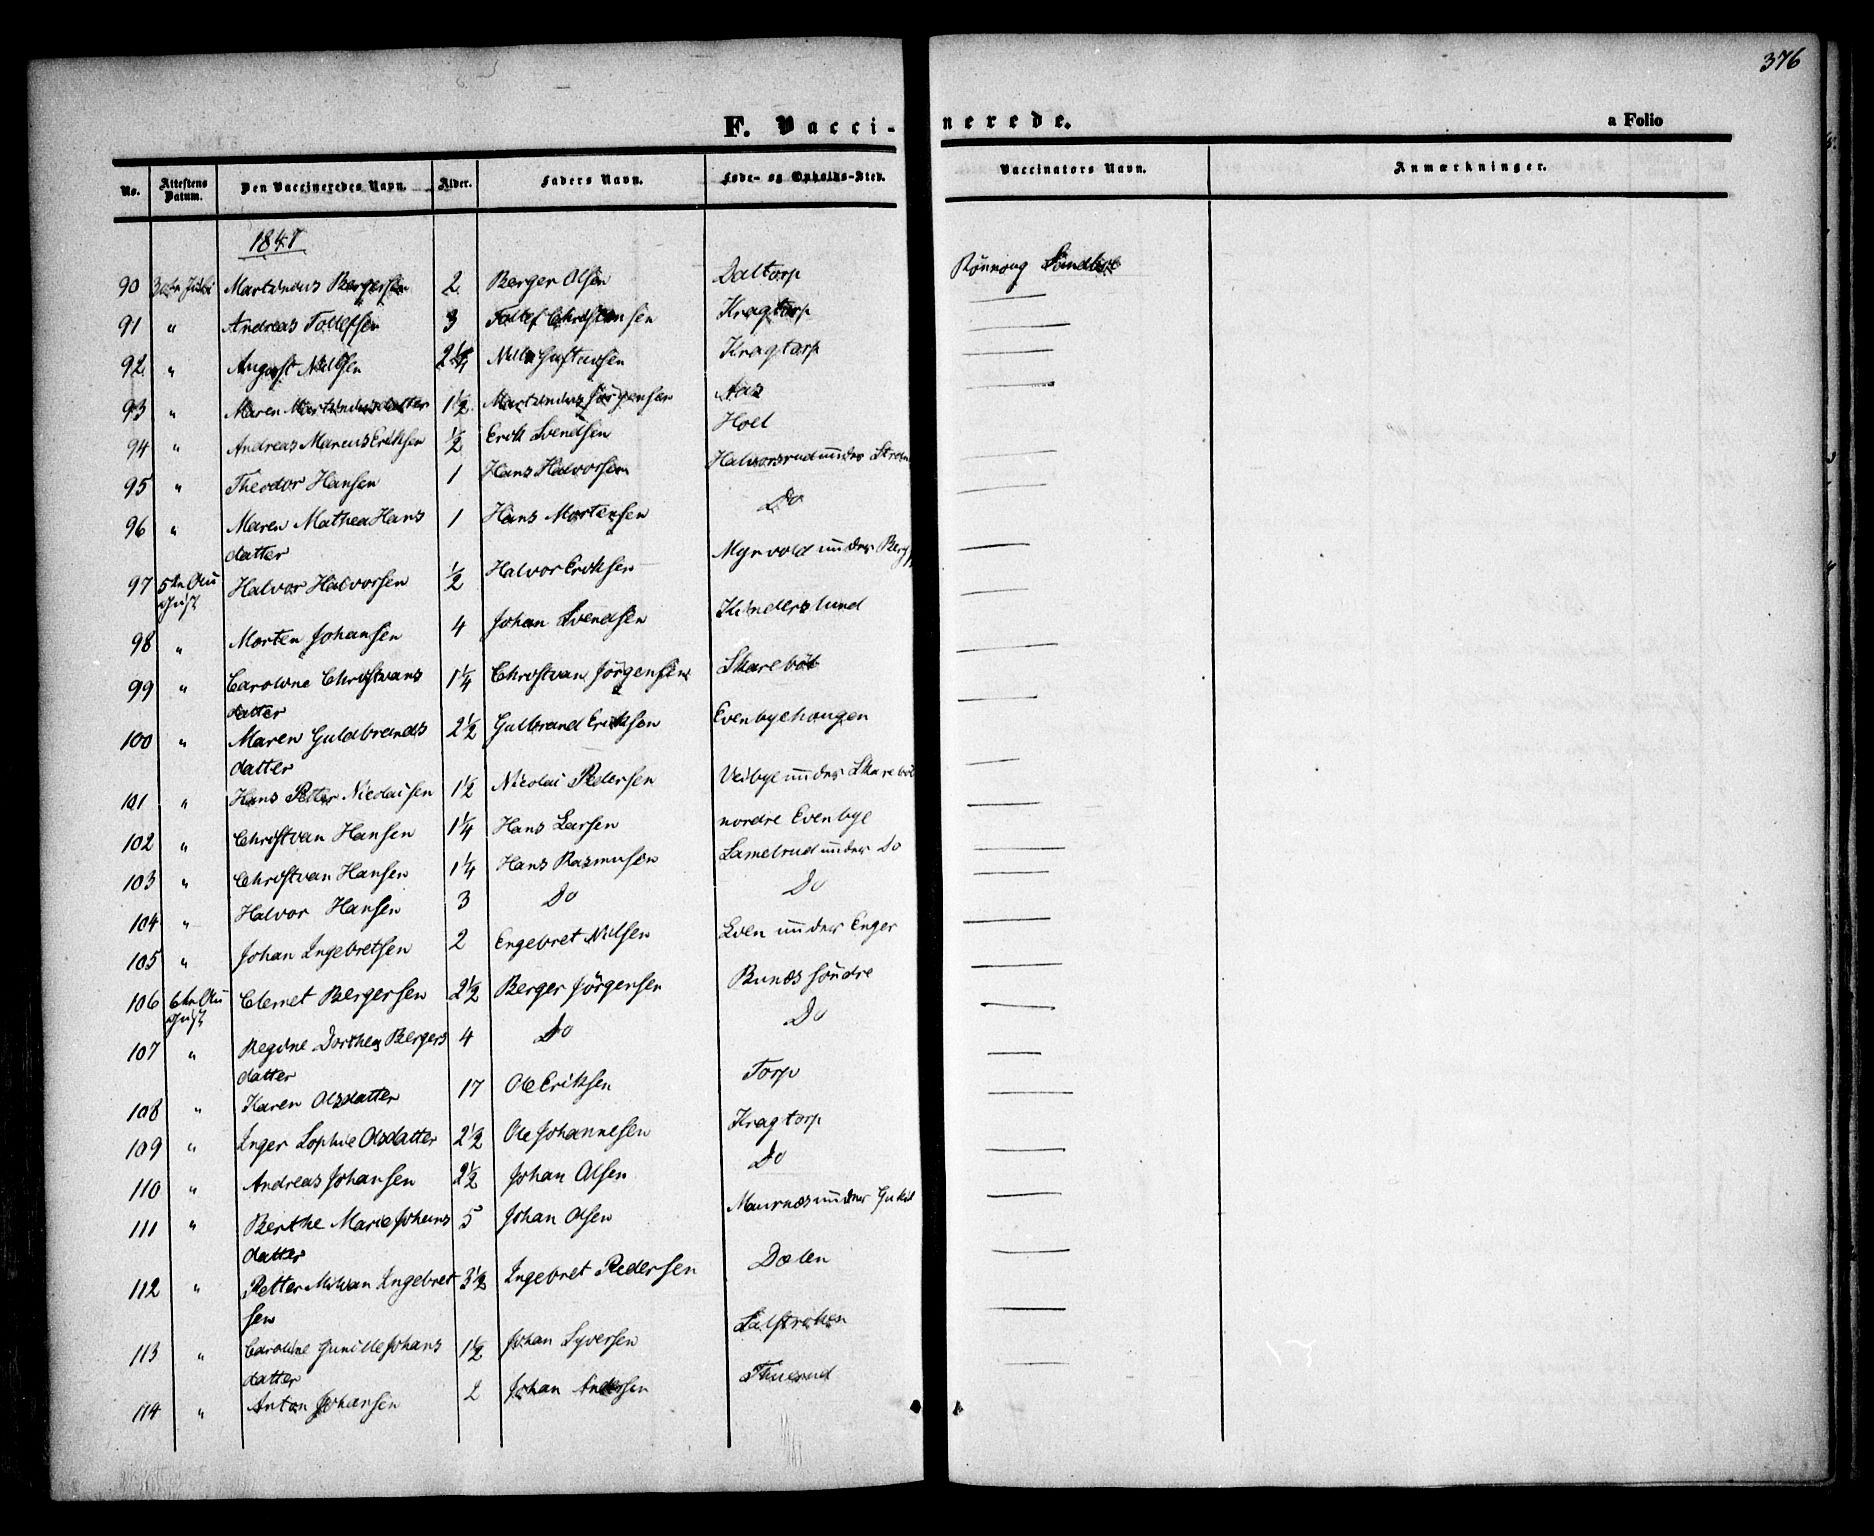 376
F. Vaccinerede.
a Folio
No. Attestens Datum. Den Vaccineredes Navn. Alder. Faders Navn. Føde- og Opholds-Sted. Vaccinators Navn. Anmærkninger.
1847
90 Martinius Bergersen 2 Berger Olsen Daltorp Rönnoug
91 " Andreas Tollefsen 3 Tollef Christensen Kragtorp
92 " August Nilssen 2 1/4 Nils Gustavsen Kragtorp
93 " Maren Martiniusdatter 1 1/2 Martinius Jörgensen Aas
94 " Andreas Marcus Eriksen 1/2 Erik Svendsen Hoel
95 " Theodor Hansen 1 Hans Halvorsen Halvorsrud under Strøm
96 " Maren Mathea Hans 1 Hans Mortensen Do
datter
97 5te Au Halvor Halvorsen 1/2 Halvor Eriksen Myrvold under Berg
gust
98 " Morten Johansen 4 Johan Svendsen Kinderslund
99 " Caroline Christians 1 1/4 Christian Jörgensen Skareböl
datter
100 " Maren Guldbrands 2 1/2 Gulbrand Eriksen Evenbyehaugen
datter
101 " Hans Petter Nicolaisen 1 1/2 Nicolai Pedersen Veibye under Skareböl
102 " Christian Hansen 1 1/4 Hans Larsen nordre Evenbye
103 " Christian Hansen 1 1/4 Hans Rasmusen Lamelrud under Do
104 " Halvor Hansen 3 Do Do
105 " Johan Ingebretsen 2 Engebret Nilsen Even under Enger
106 6te Au Clemet Bergersen 2 1/2 Berger Jörgensen Bunæs söndre
gust
107 " Regine Dorthea Bergers 4 Do Do
datter
108 " Karen Olsdatter 17 Ole Eriksen Torp
109 " Inger Sophie Olsdatter 2 1/2 Ole Johannesen Kragtorp
110 " Andreas Johansen 2 1/2 Johan Olsen Do
111 " Berthe Marie Johans 5 Johan Olsen Maurnæs under
datter
112 " Petter Milian Ingebret 3 1/2 Ingebret Pedersen Dælen
sen
113 " Caroline Gunille Johans 1 1/2 Johan Syversen
datter
114 " Anton Johansen 2 Johan Andersen Thuerud